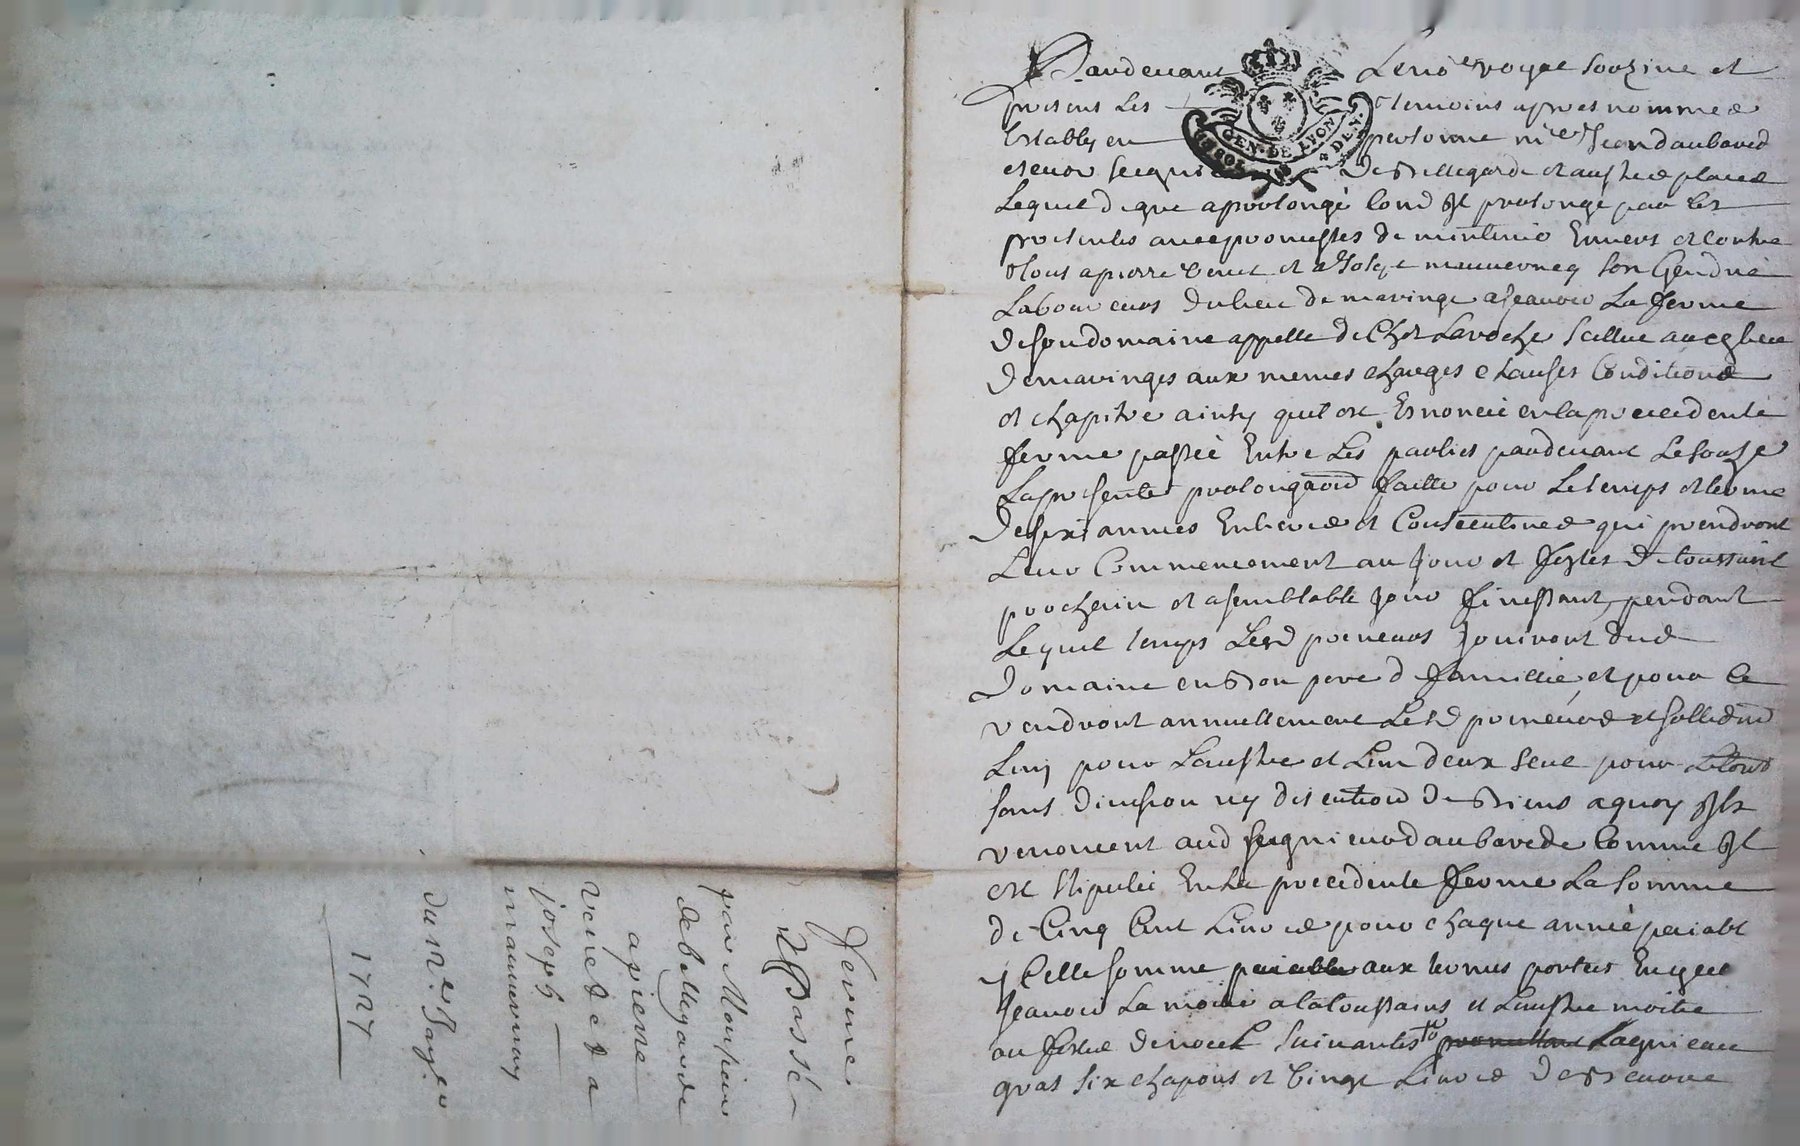 Pardevant Le no.re royal souz.ne et
presens Les temoins apres nommes
Estably en personne m.re Jean daubared
escuor seigneur de Bellegarde et austres places
Lequel de gre a prolongé comd Il prolonge par les
presentes avec promesses de mintenir Envers et contre
tous a pierre veriet et a Joseph mauvernay son Gendre
Laboureurs du lieu de maringe ascavoir La ferme
de son domaine appelle de Chez Laroche scittue aud lieu
de maringes aux memes charges clauses Conditions
et chapitre ainsy quil est Esnoncé en la precedente
ferme passée Entre Les parties pardevant Le souz.e
La presente prolonga.on faitte pour Le temps et terme
de six années Entieres et Consecutives qui prendront
Leur Commencement au Jour et festes de toussaint
prochein et a semblable Jour finissant, pendant
Lequel temps Lesd preneurs Jouiront dud
Domaine en Bon pere de famillie, et pour Ce
rendront annuellement Lesd preneurs et sollid.nt
Lun pour Laustre et Lun deux seul pour Le tout
sans division ny discution de Biens a quoy Ils
renoncent aud seigneur daubarede Comme Il
est stipulé En La precedente ferme La somme
de Cinq Cent Livres pour chaque année paiable
ycelle somme paiable aux termes portes En ycelle
scavoir La moitié a la toussains et Laustre moitié
au festes de noel suivantes promettant Lagnieau
gras six chapons et vingt Livres de Beurre
ferme
Passé
par Monsieur
de bellegarde
a pierre
veriet et a
joseph
mauvernay
du sr. Jay.
1727
GEN. DE LYON
4 DEN.